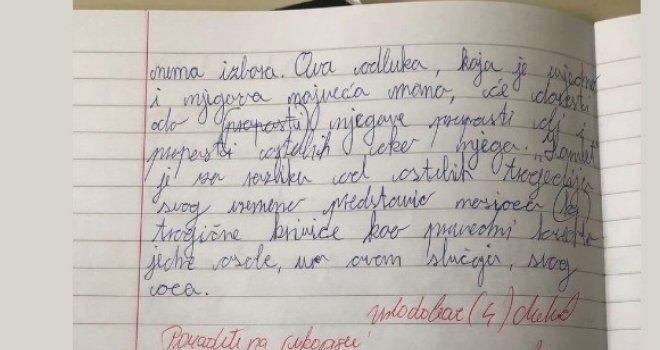 nema izbora. Ova odluka, koja je ujedno
i njegova najveća mana, će dovesti
do propasti njegove propasti i
propasti ostalih oko njega. „Hamlet"
je za razliku od ostalih tragedija
svog vremena predstavio
tragične krivice kao pravedni
jedne osobe, u ovom slučaju, svog
oca.
vrlodobar (4)
Poraditi na rukopisu